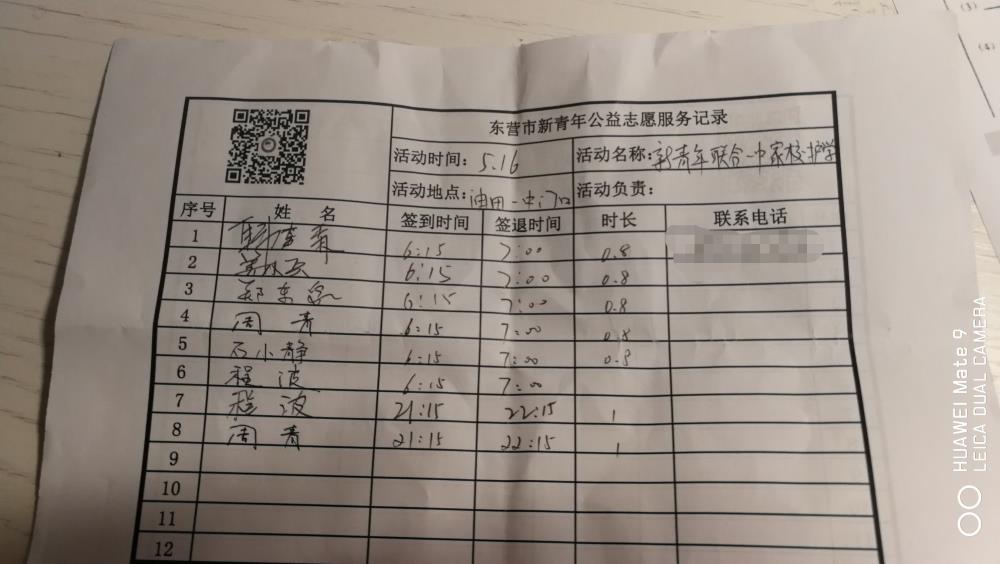 东营市新青年公益志愿服务记录
活动时间: 5.16 活动名称: 新青年联合一中家校护学
活动地点: 油田一中门口 活动负责:
序号 姓 名 签到时间 签退时间 时长 联系电话
1 6:15 7:00 0.8
2 6:15 7:00 0.8
3 郑东 6:15 7:00 0.8
4 周青 6:15 7:00 0.8
5 石小静 6:15 7:00 0.8
6 程波 6:15 7:00
7 程波 21:15 22:15 1
8 周青 21:15 22:15 1
9
10
11
12
HUAWEI Mate 9
LEICA DUAL CAMERA